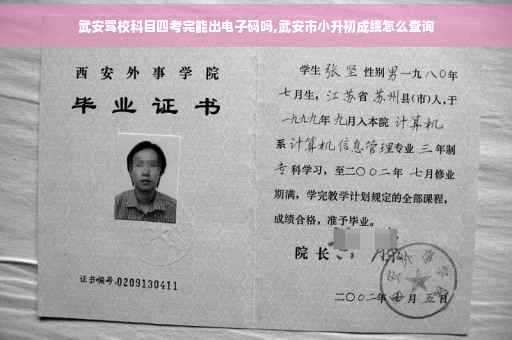 武安驾校科目四考完能出电子码吗,武安市小升初成绩怎么查询
西安外事学院
毕业证书
证书编号:0209130411
学生 张坚 性别 男 一九八〇年
七月生，江苏省 苏州县(市)人,于
一九九九年 九月入本院 计算机
系 计算机信息管理专业 三 年制
专 科学习，至二〇〇二年 七月修业
期满，学完教学计划规定的全部课程，
成绩合格，准予毕业。
院 长
二〇〇二年 月 五日